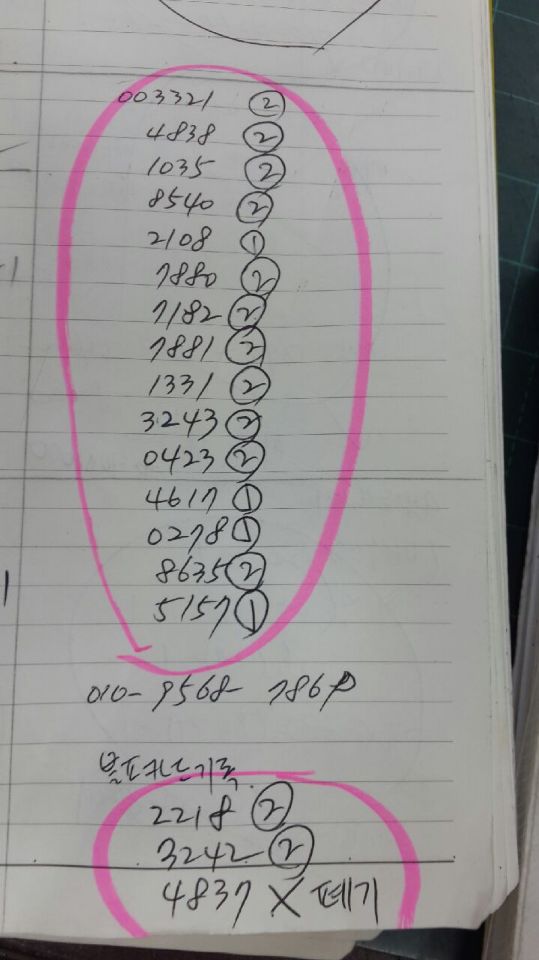 003321 ②
4838 ②
1035 ②
8540 ②
2108 ①
7880 ②
7182 ②
7881 ②
1331 ②
3243 ②
0423 ②
4617 ①
0278 ①
8635 ②
5157 ①
010-9568-786
2218 ②
3242 ②
4837 X 폐기